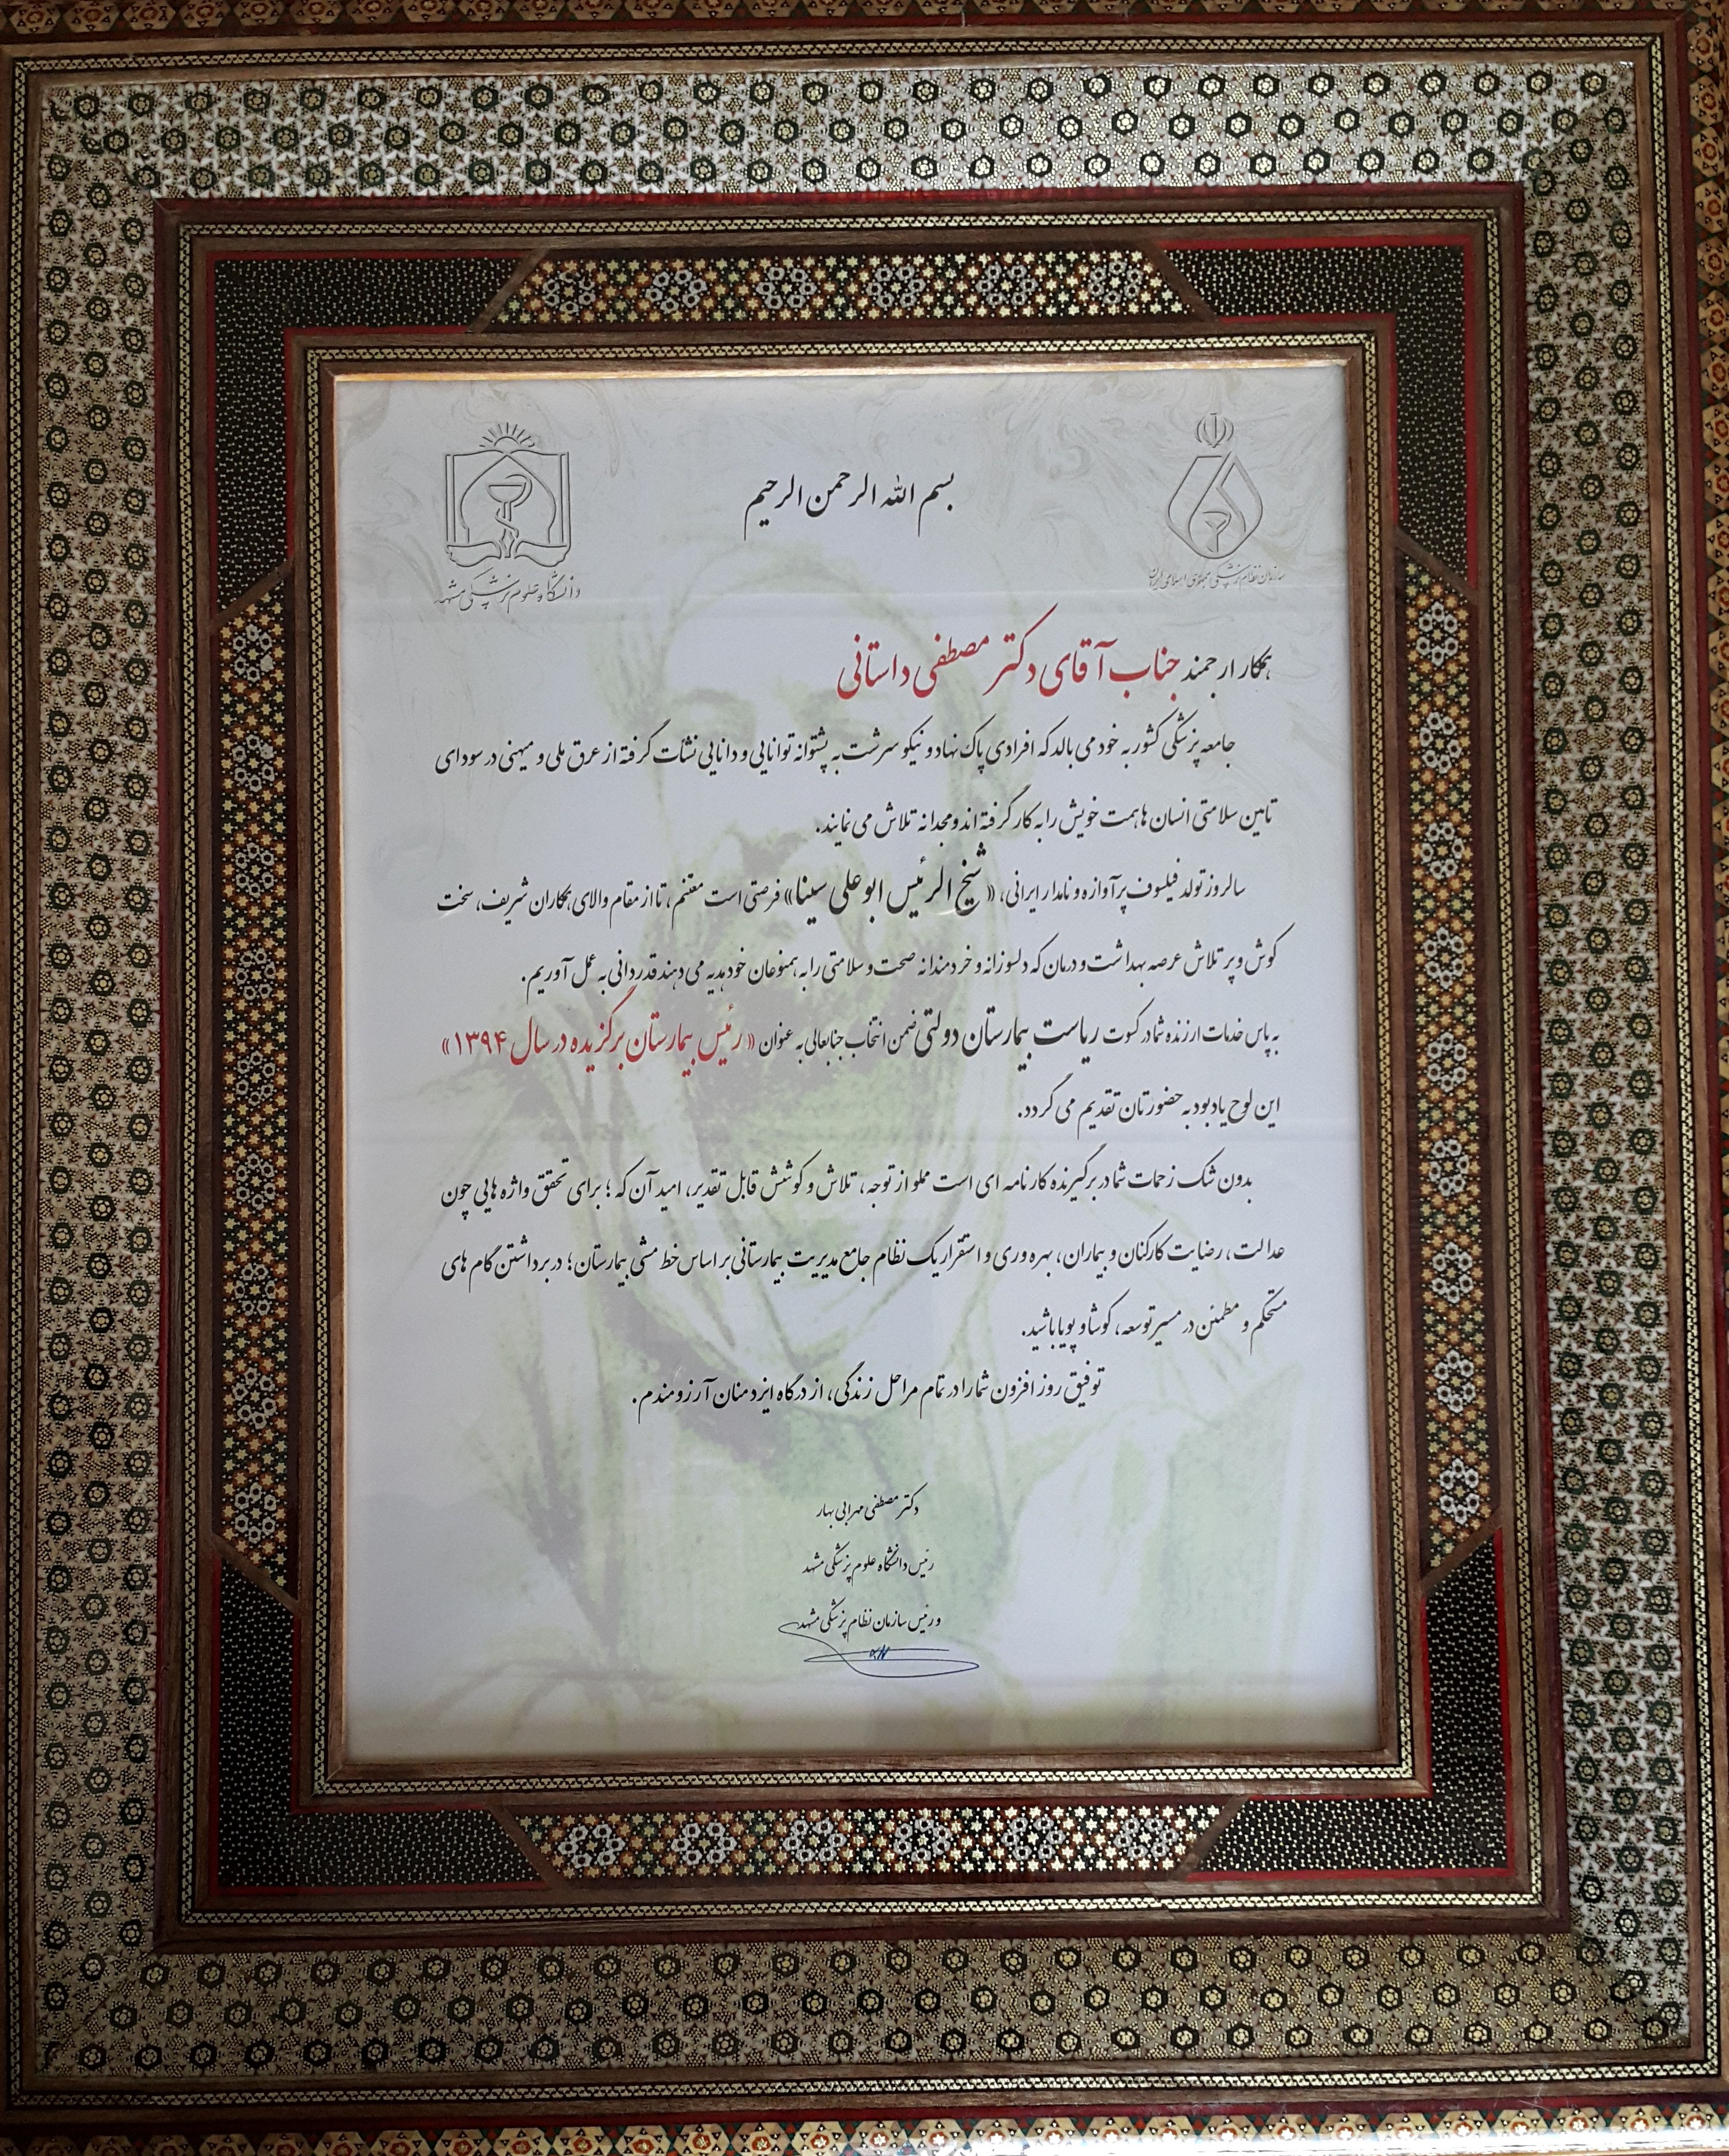 بسم الله الرحمن الرحیم
سازمان نظام پزشکی جمهوری اسلامی ایران
دانشگاه علوم پزشکی مشهد
همکار ارجمند جناب آقای دکتر مصطفی داستانی
جامعه پزشکی کشور به خود می بالد که افرادی پاک نهاد و نیکو سرشت به پشتوانه توانایی و دانایی نشأت گرفته از عرق ملی و میهنی در سودای
تامین سلامتی انسان ها همت خویش را به کار گرفته اند و مجدانه تلاش می نمایند.
سالروز تولد فیلسوف پرآوازه و نامدار ایرانی، «شیخ الرئیس ابوعلی سینا» فرصتی است مغتنم، تا از مقام والای همکاران شریف، سخت
کوش و پر تلاش عرصه بهداشت و درمان که دلسوزانه و خردمندانه صحت و سلامتی را به همنوعان خود هدیه می دهند قدردانی به عمل آوریم.
به پاس خدمات ارزنده شما در کسوت ریاست بیمارستان دولتی ضمن انتخاب جنابعالی به عنوان «رئیس بیمارستان برگزیده در سال ۱۳۹۴»
این لوح یادبود به حضورتان تقدیم می گردد.
بدون شک زحمات شما در برگیرنده کارنامه ای است مملو از توجه، تلاش و کوشش قابل تقدیر، امید آن که؛ برای تحقق واژه هایی چون
عدالت، رضایت کارکنان و بیماران، بهره وری و استقرار یک نظام جامع مدیریت بیمارستانی بر اساس خط مشی بیمارستان؛ در برداشتن گام های
مستحکم و مطمئن در مسیر توسعه، کوشا و پویا باشید.
توفیق روز افزون شما را در تمام مراحل زندگی، از درگاه ایزد منان آرزومندم.
دکتر مصطفی مهرابی بهار
رئیس دانشگاه علوم پزشکی مشهد
و رئیس سازمان نظام پزشکی مشهد